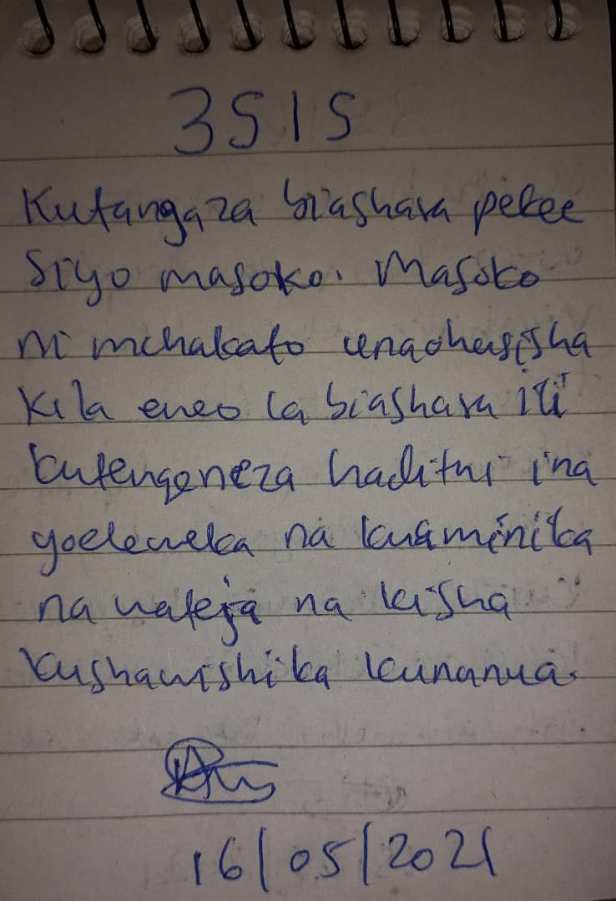 3515
Kutangaza biashara pekee
siyo masoko. Masoko
ni mchakato unaohusisha
kila eneo la biashara ili
kutengeneza hadithi ina
yoeleweka na kuaminika
na wateja na kisha
kushawishika kununua.
16/05/2021